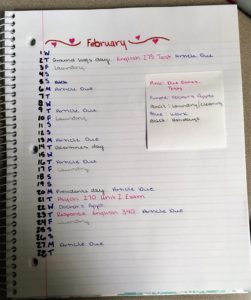 February
1 W
2 T Ground hogs day English 275 Test Article Due
3 F Laundry
4 S
5 S
6 M Article Due
7 T
8 W
9 T Article Due
10 F Laundry
11 S
12 S
13 M Article Due
14 T Valentines day
15 W
16 T Article Due
17 F Laundry
18 S
19 S
20 M Presidents day Article Due
21 T 270 Unit I Exam
22 W Doctor's Appt.
23 T Response English 340 Article Due
24 F Laundry
25 S
26 S
27 M Article Due
28 T
Pink: Due Dates, Tests
Purple: Doctor's Appts
Pencil: Laundry/cleaning
Blue: Work
Black: Holidays